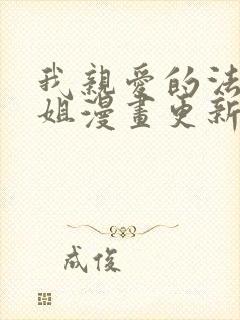 我親愛的法
姐漫畫更新
成俊